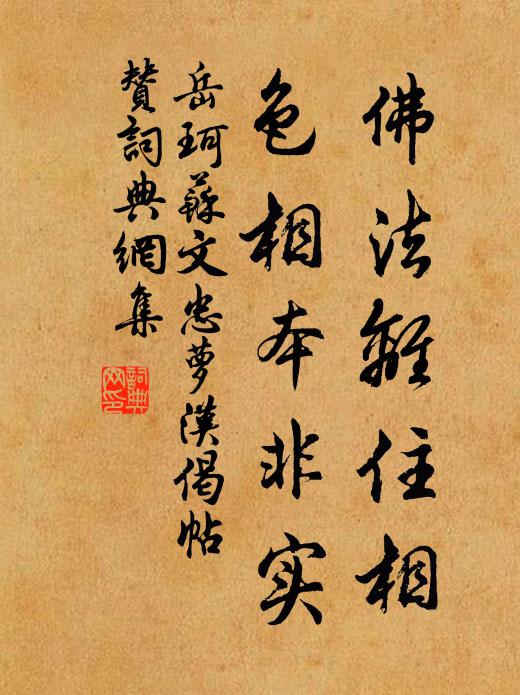 佛法離住相
色相本非实
岳珂蘇文忠夢漢偈帖
贊詞典網集
詞典
网印